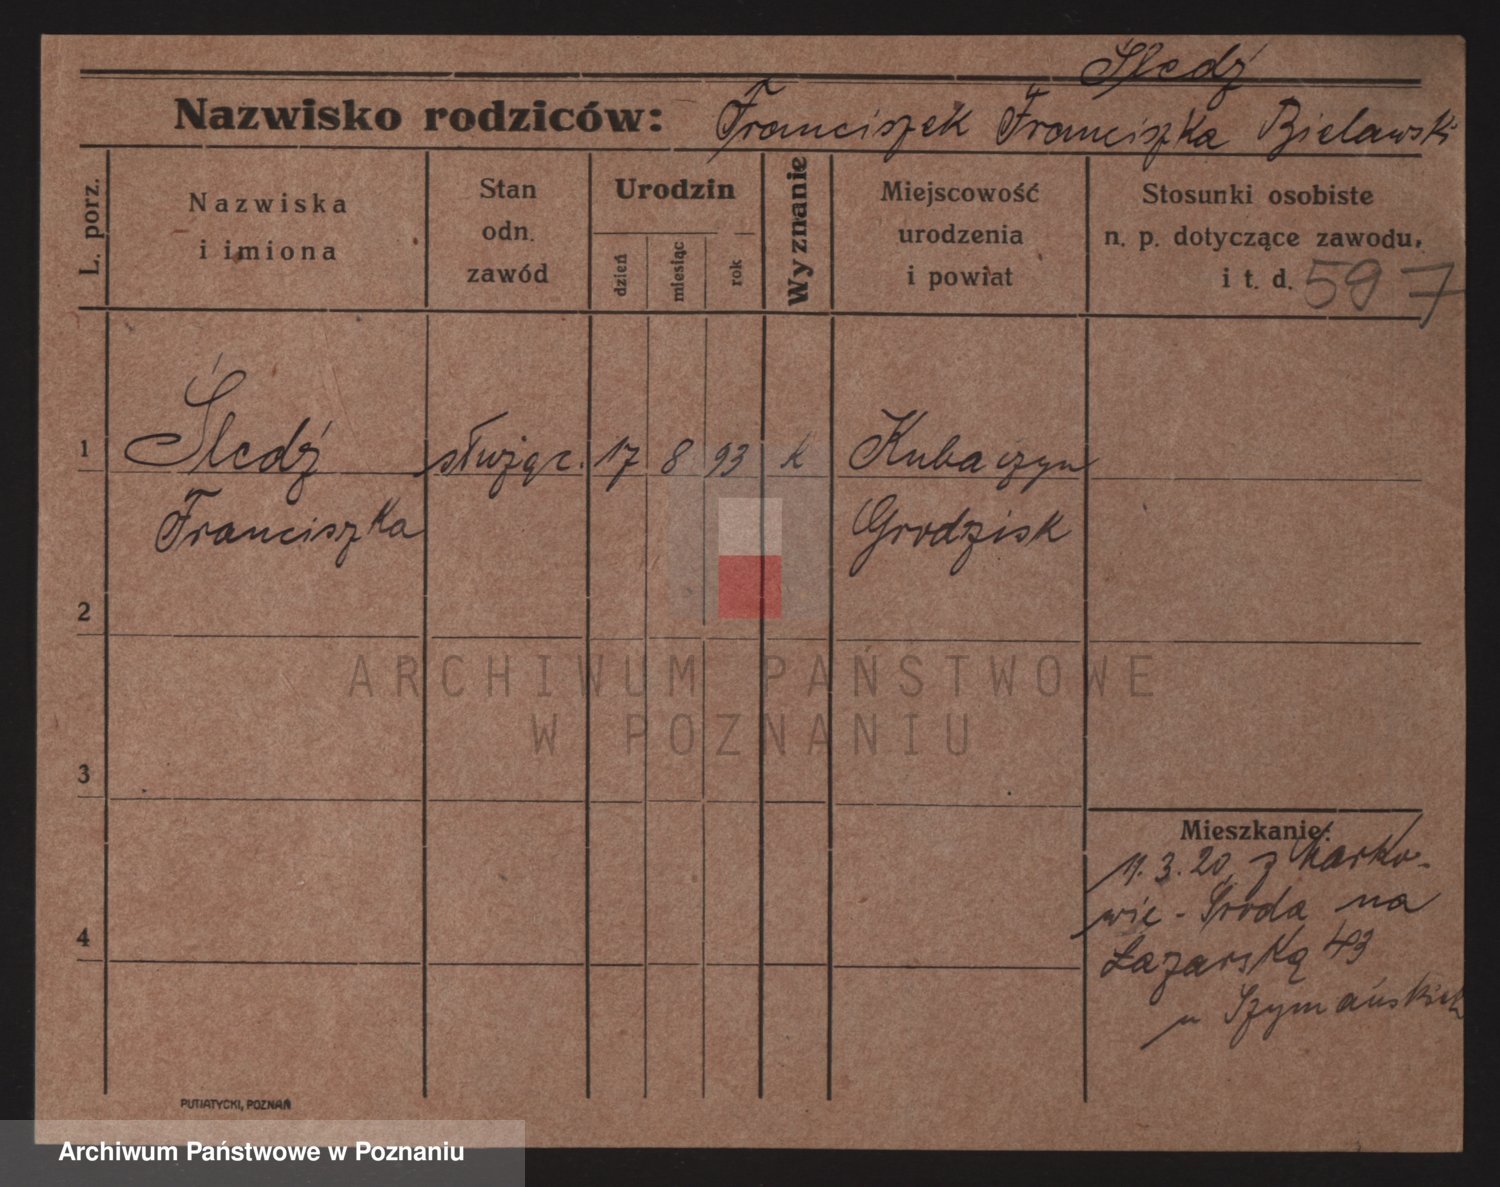 Śledź
Nazwisko rodziców: Franciszek Franciszka Bielawski
L. porz.
Nazwiska
i imiona
Stan
odn.
zawód
Urodzin
dzień
miesiąc
rok
Wyznanie
Miejscowość
urodzenia
i powiat
Stosunki osobiste
n. p. dotyczące zawodu,
i t. d. 597
1 Śledź służąc. 17 8 93 k Kubaczyn
Franciszka Grodzisk
2
ARCHIWUM PAŃSTWOWE
W POZNANIU
3
Mieszkanie:
11.3.20 z Marko-
wic - Środa na
4
Łazarską 43
u Szymańskich
PUTIATYCKI, POZNAŃ
Archiwum Państwowe w Poznaniu